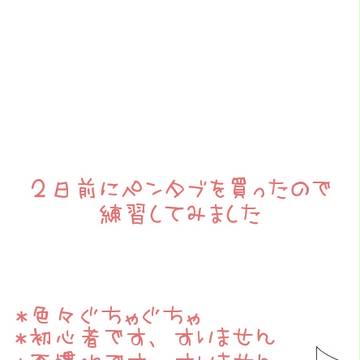 2日前にペンタブを買ったので
練習してみました
*色々ぐちゃぐちゃ
*初心者です、すいません